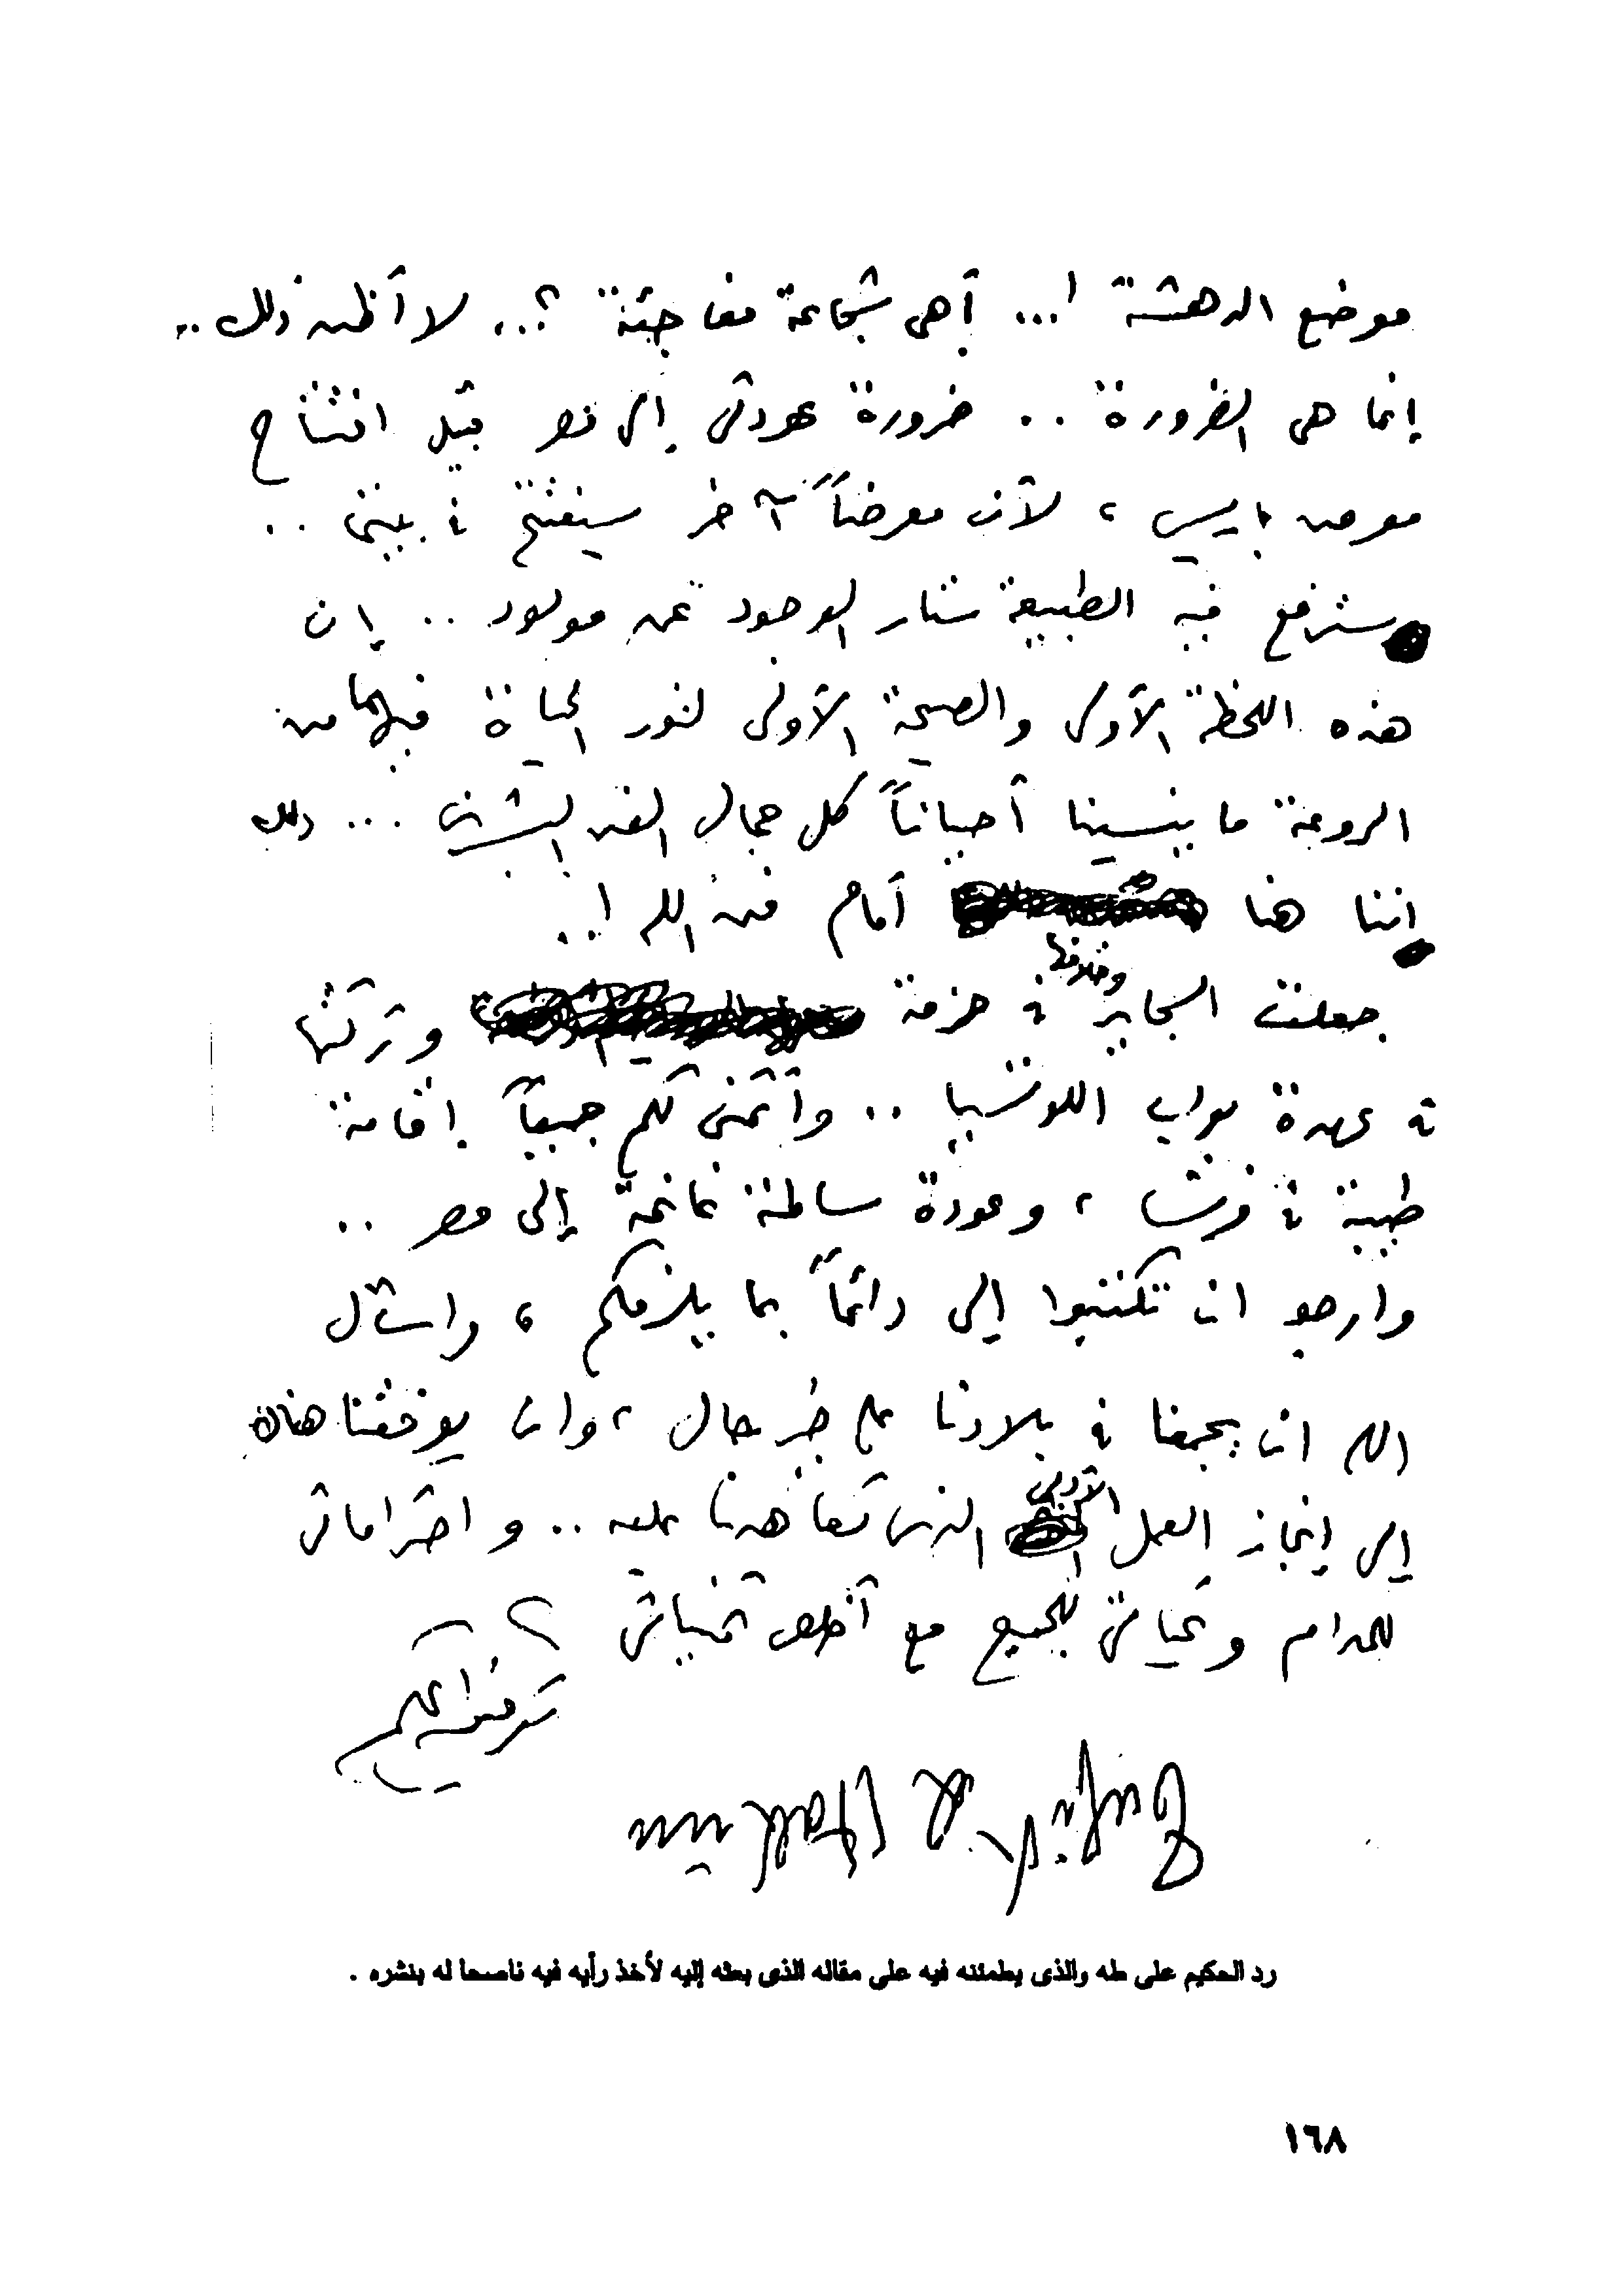 موضع الدهشة !... أهى شجاعة مفاجئة ؟... لا أظن ذلك ..
إنما هى الضرورة .. ضرورة عودتى إلى مصر قبل افتتاح
معرض باريس ، لأن معرضاً آخر سيفتتح فى بيتى ..
سترفع فيه الطبيعة ستار الوجود عن مولود .. إن
هذه اللحظة الأولى والصيحة الأولى لنور الحياة فيهما من
الروعة ما ينسينا أحياناً كل جمال الفن البشرى ... ذلك
اننا هنا أمام فن الله !..
جعلت السجاير وخلافها فى حزمة وتركتها
فى عهدة بواب اللوتسيا .. وأتمنى لكم جميعاً إقامة
طيبة فى فرنسا ، وعودة سالمة غانمة إلى مصر ..
وارجو ان تكتبوا إلى دائماً بما يلزمكم ، واسأل
الله ان يجمعنا فى بلادنا على خير حال ، وان يوفقنا هناك
إلى إنجاز العمل الأدبى الذى تعاهدنا عليه .. و احتراماتى
للمدام وتحياتى للجميع مع أخلص تمنياتى
توفيق الحكيم
Tewfik el Hakim
رد الحكيم على طه والذى يطمئنه فيه على مقاله الذى بعثه إليه لأخذ رأيه فيه ناصحا له بنشره .
١٦٨